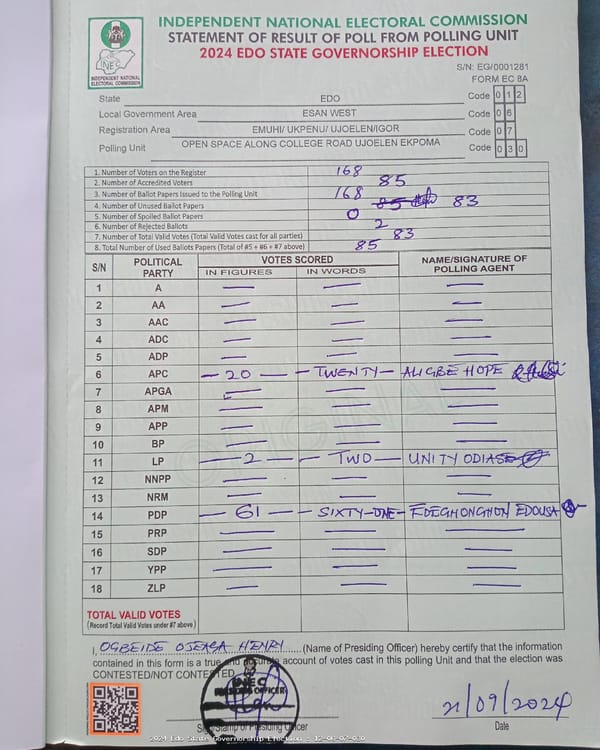 INDEPENDENT NATIONAL ELECTORAL COMMISSION
STATEMENT OF RESULT OF POLL FROM POLLING UNIT
2024 EDO STATE GOVERNORSHIP ELECTION
INEC
INDEPENDENT NATIONAL
ELECTORAL COMMISSION
S/N: EG/0001281
FORM EC 8A
State EDO Code 0 1 2
Local Government Area ESAN WEST Code 0 6
Registration Area EMUHI/ UKPENU/ UJOELEN/IGOR Code 0 7
Polling Unit OPEN SPACE ALONG COLLEGE ROAD UJOELEN EKPOMA Code 0 3 0
1. Number of Voters on the Register 168
2. Number of Accredited Voters 85
3. Number of Ballot Papers Issued to the Polling Unit 168
4. Number of Unused Ballot Papers 85 83
5. Number of Spoiled Ballot Papers 0
6. Number of Rejected Ballots 2
7. Number of Total Valid Votes (Total Valid Votes cast for all parties) 83
8. Total Number of Used Ballots Papers (Total of #5 + #6 + #7 above) 85
S/N POLITICAL PARTY VOTES SCORED NAME/SIGNATURE OF POLLING AGENT
IN FIGURES IN WORDS
1 A — — —
2 AA — — —
3 AAC — — —
4 ADC — — —
5 ADP — — —
6 APC — 20 — — TWENTY — ALIGBE HOPE
7 APGA — — —
8 APM — — —
9 APP — — —
10 BP — — —
11 LP — 2 — — TWO — UNITY ODIASE
12 NNPP — — —
13 NRM — — —
14 PDP — 61 — — SIXTY-ONE — EDOUSA
15 PRP — — —
16 SDP — — —
17 YPP — — —
18 ZLP — — —
TOTAL VALID VOTES
(Record Total Valid Votes under #7 above)
I, OGBEIDE OJEAGA HENRY (Name of Presiding Officer) hereby certify that the information
contained in this form is a true and accurate account of votes cast in this polling Unit and that the election was
CONTESTED/NOT CONTESTED
INEC
PRESIDING OFFICER
21/09/2024
Sign/Stamp of Presiding Officer Date
2024 Edo State Governorship Election - 12-06-07-030